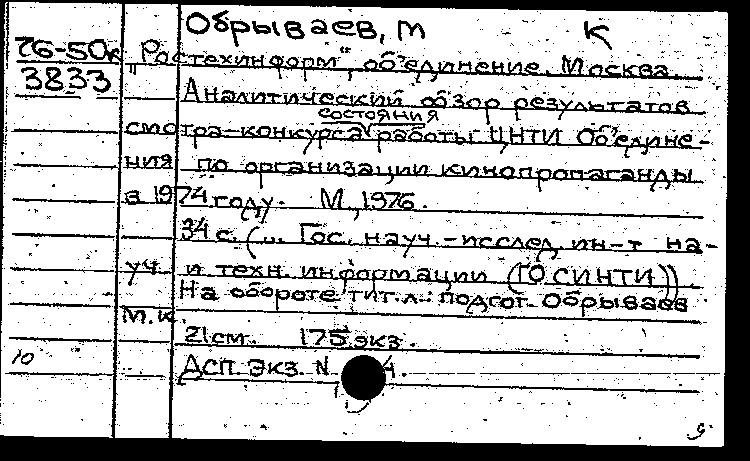 Обрываев, М К
76-50к "Ростехинформ", об'единение. Москва.
3833 Аналитический обзор результатов
состояния
смотра-конкурса работы ЦНТИ Об'едине-
ния по организации кинопропаганды
в 1974 году. М., 1976.
34 с. (... Гос. науч.-исслед. ин-т на-
уч. и техн. информации (ГОСИНТИ))
На обороте тит. л.: подгот. Обрываев
М.К.
21 см. 175 экз.
10 ДСП. Экз. N 4.